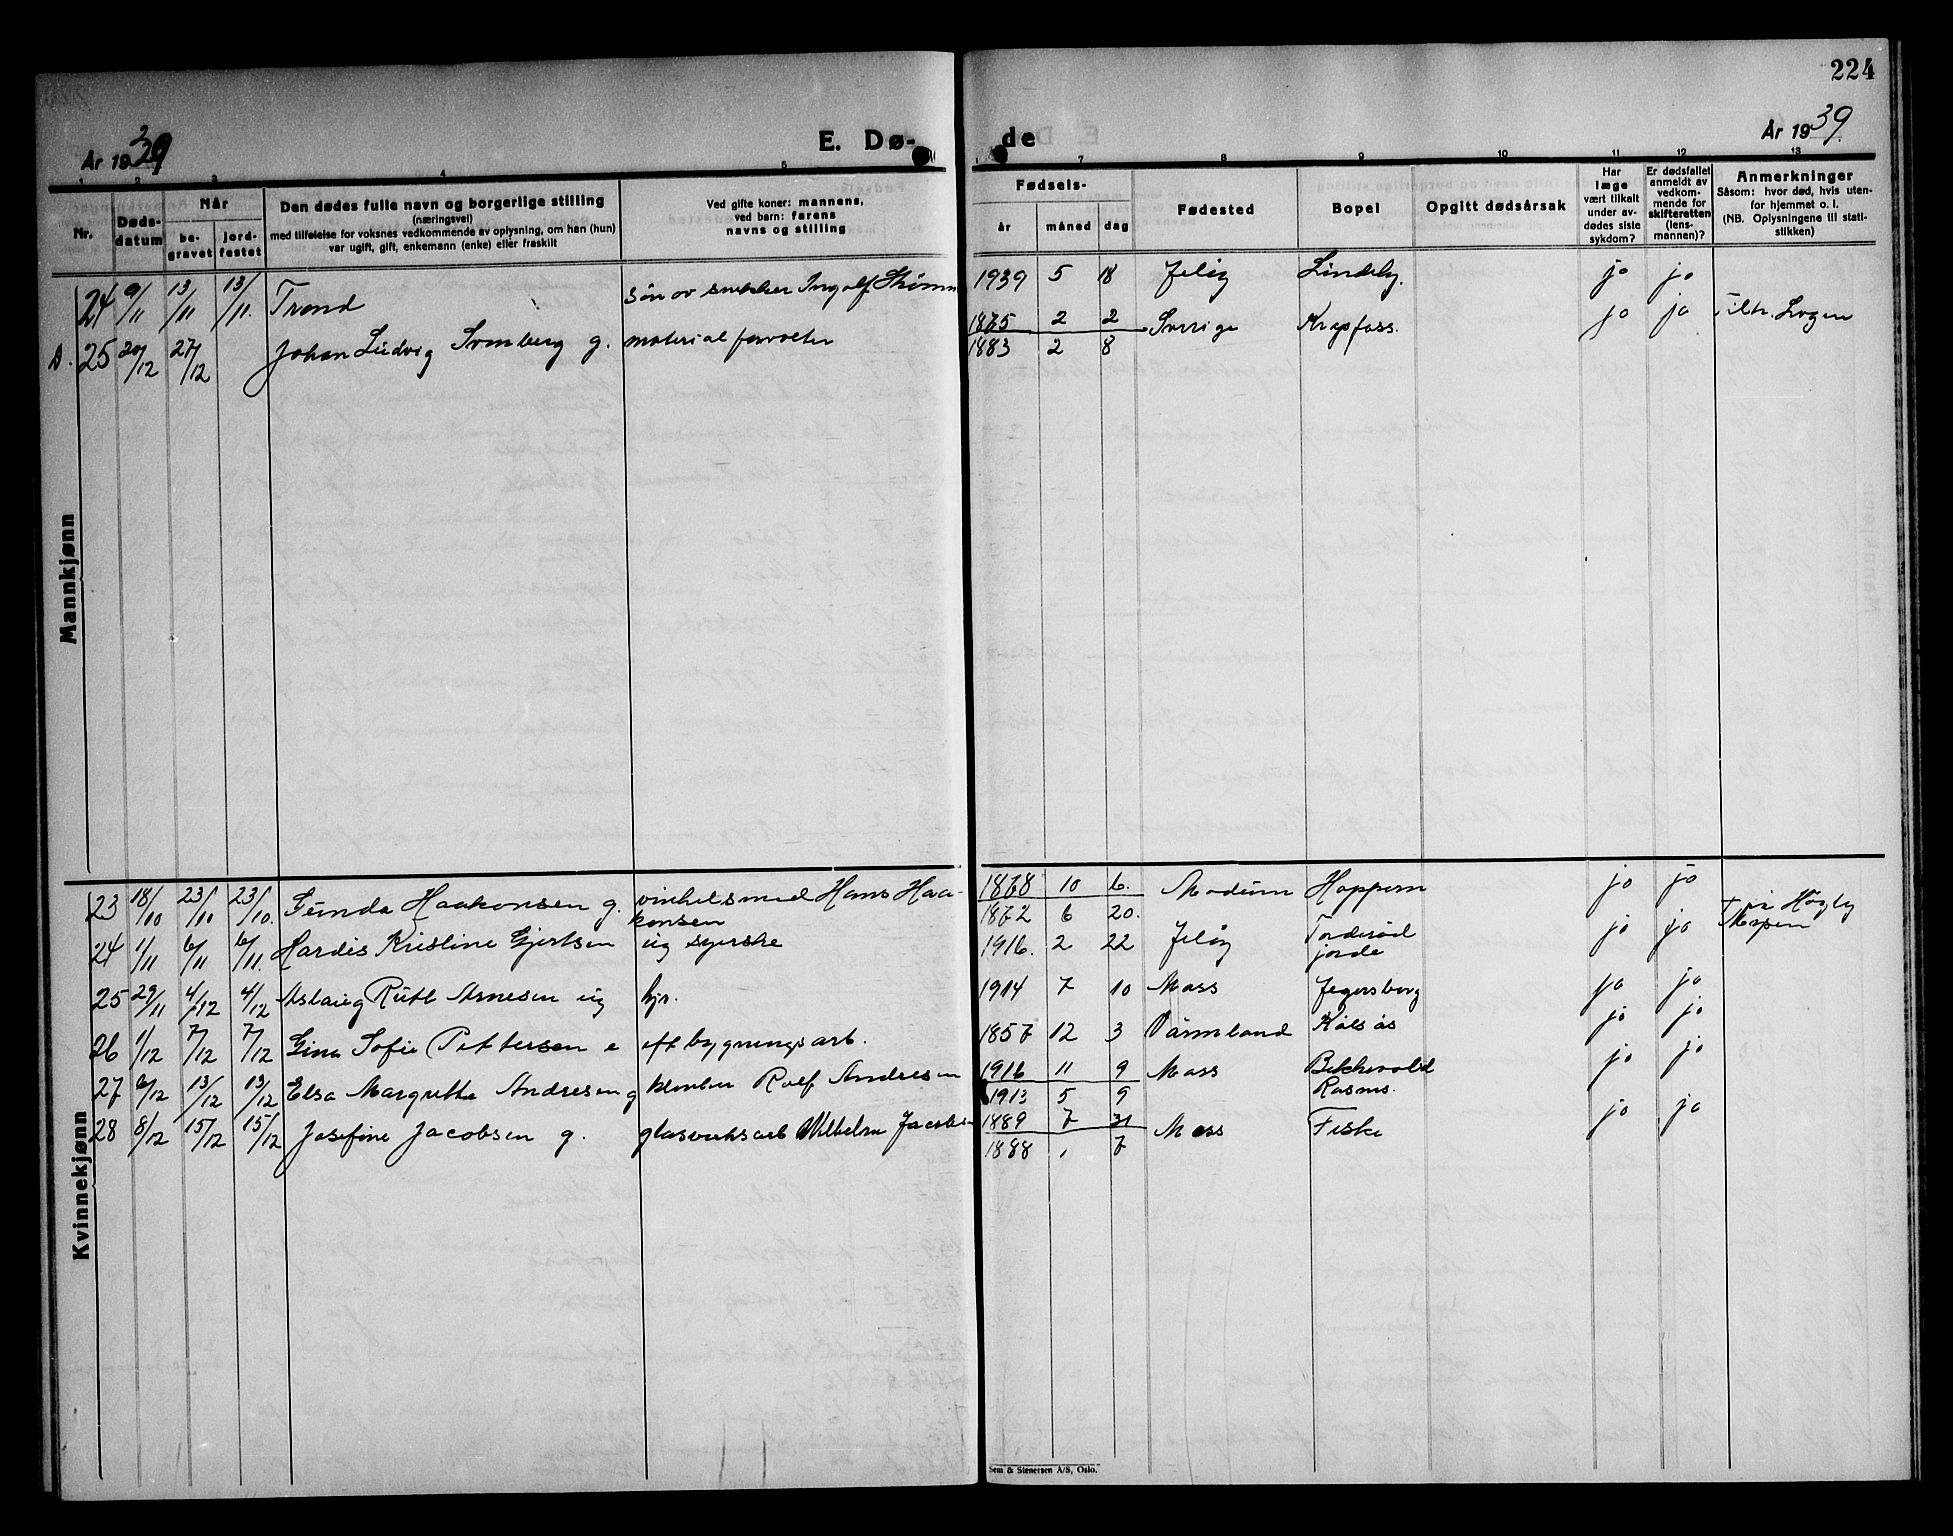 224
År 1939
E. Dø-
de
År 1939.
1 2 3 4 5
7 8 9 10 11 12 13
Nr.
Døds-
datum
Når
be-
gravet
jord-
festet
Den dødes fulle navn og borgerlige stilling
(næringsvei)
med tilføielse for voksnes vedkommende av oplysning, om han (hun)
var ugift, gift, enkemann (enke) eller fraskilt
Ved gifte koner: mannens,
ved barn: farens
navns og stilling
Fødsels-
år måned dag
Fødested
Bopel
Opgitt dødsårsak
Har
læge
vært tilkalt
under av-
dødes siste
sykdom?
Er dødsfallet
anmeldt av
vedkom-
mende for
skifteretten
(lens-
mannen)?
Anmerkninger
Såsom: hvor død, hvis uten-
for hjemmet o. l.
(NB. Oplysningene til stati-
stikken)
Mannkjønn
24 9/11 13/11 13/11. Trond søn av snekker Ingolf 1939 5 18 Jeløy Lindeby. jo jo
25 20/12 27/12 Johan Ludvig Svenberg g. materialforvalter 1875 2 2 Sverige Krapfoss. jo jo
1883 2 8
Kvinnekjønn
23 18/10 23/10 23/10. Haakonsen g. vinkelsmed Hans Haa- 1878 10 6. Modum Hoppern jo jo
konsen 1872 6 20.
24 1/11 6/11 6/11. Hardis Kristine Gjertsen ug syerske 1916. 2 22 Jeløy jo jo
jorde
25 29/11 4/12 4/12 Aslaug Ruth Arnesen ug hjv. 1914 7 10 Moss Jegersborg jo jo
26 1/12 7/12 7/12 Gina Sofie Pettersen e eft bygningsarb. 1857 12 3 Värmland Kålsås jo jo
27 6/12 13/12 13/12 Elsa Margrethe Andresen g Rolf Andresen 1916 11 9 Moss Bekkevold jo jo
1913 5 9 Rosnes.
28 8/12 15/12 15/12 Josefine Jacobsen g. glasverksarb Wilhelm Jacobsen 1889 7 31 Moss Fiske jo jo
1888 1 7
Sem & Stenersen A/S, Oslo.